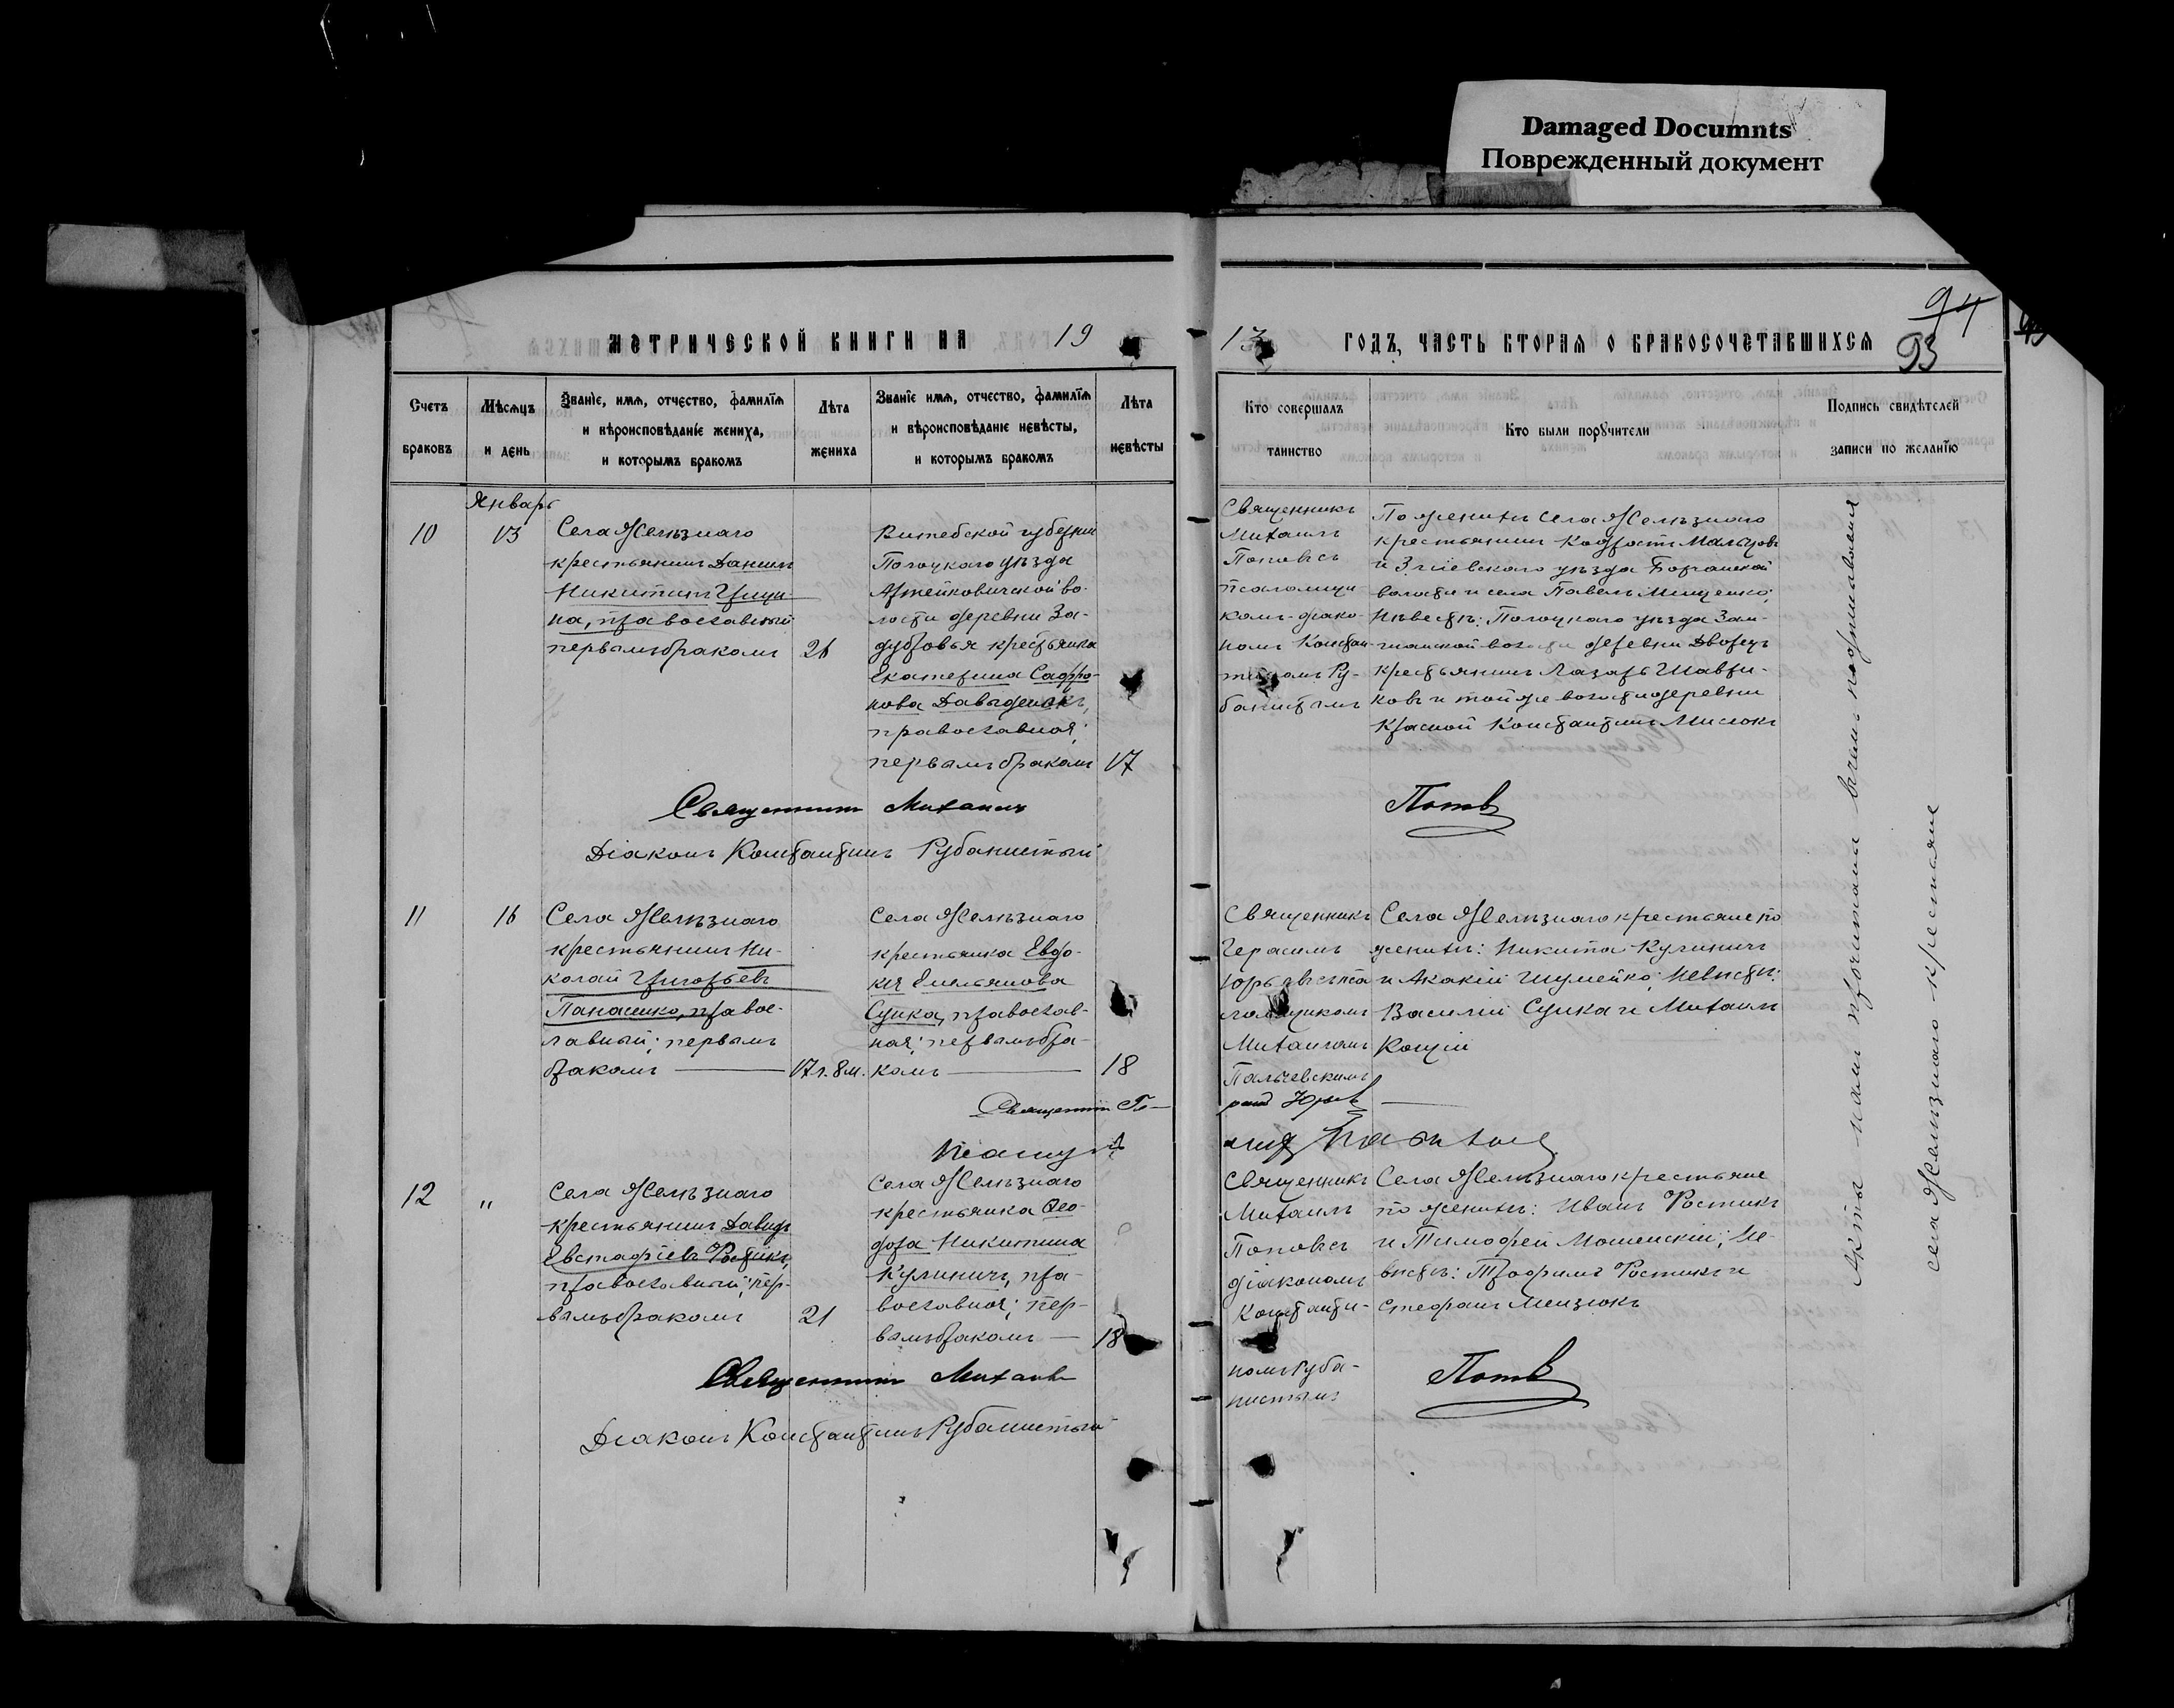 Damaged Documnts
Поврежденный документ
94
93
МЕТРИЧЕСКОЙ КНИГИ НА 19 13 ГОДЪ, ЧАСТЬ ВТОРАЯ О БРАКОСОЧЕТАВШИХСЯ
Счетъ браковъ
Мѣсяцъ и день
Званіе, имя, отчество, фамилія
и вѣроисповѣданіе жениха,
и которымъ бракомъ
Лѣта жениха
Званіе имя, отчество, фамилія
и вѣроисповѣданіе невѣсты,
и которымъ бракомъ
Лѣта невѣсты
Кто совершалъ таинство
Кто были поручители
Подпись свидѣтелей
записи по желанію
Январь
10
13
Села Желѣзнаго
крестьянинъ Даніилъ
Никитинъ
православный
первымъ бракомъ
26
Витебской губерніи
Полоцкаго уѣзда
Артейковичской во-
лости деревни За-
дубровья крестьянка
Екатерина Сафро-
нова
православная;
первымъ бракомъ
17
Священникъ
Михаилъ
Поповъ съ
псаломщи-
комъ діако-
номъ Констан-
тиномъ Ру-
банистымъ
По женихѣ: села Желѣзнаго
крестьянинъ Кодратъ Мальцовъ
и Зміевскаго уѣзда
волости и села Павелъ Мищенко;
Невѣстѣ: Полоцкаго уѣзда
волости деревни Дворецъ
крестьянинъ Лазарь Шаври-
ковъ и той же волости деревни
Красной Константинъ Мисюкъ
Священникъ Михаилъ Поповъ
Діаконъ Константинъ Рубанистый
11
16
Села Желѣзнаго
крестьянинъ Ни-
колай Григорьевъ
Панасенко, правос-
лавный; первымъ
бракомъ
17 л. 8 м.
Села Желѣзнаго
крестьянка Евдо-
кія Емельянова
Сущка, православ-
ная; первымъ бра-
комъ
18
Священникъ
Герасимъ
Юрьевъ съ пса-
ломщикомъ
Михаиломъ
Пальчевскимъ
Села Желѣзнаго крестьяне по
женихѣ: Никита Кулиничъ
и Акакій Шумейко; Невѣстѣ:
Василій Сущка и Михаилъ
Коцій
Священникъ
12
"
Села Желѣзнаго
крестьянинъ Давидъ
Евстафіевъ Ростикъ,
православный; пер-
вымъ бракомъ
21
Села Желѣзнаго
крестьянка Ѳео-
дора Никитина
Кулиничъ, пра-
вославная; пер-
вымъ бракомъ
18
Священникъ
Михаилъ
Поповъ съ
діакономъ
Константи-
номъ Руба-
нистымъ
Села Желѣзнаго крестьяне
по женихѣ: Иванъ Ростикъ
и Тимофей Мошенскій; Не-
вѣстѣ: Трофимъ Ростикъ и
Стефанъ Мензюкъ
Священникъ Михаилъ Поповъ
Діаконъ Константинъ Рубанистый
Акты намъ прочитаны въ чемъ и подписываемся
села Желѣзнаго крестьяне